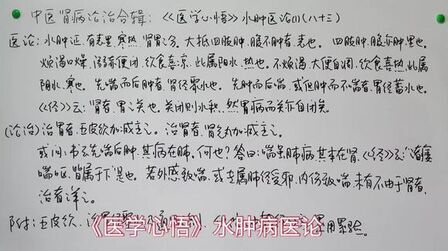 中医肾病论治合辑:《医学心悟》水肿医论(1)(八十三)
医论:水肿证,有表里、寒热、肾胃之分。大抵四肢肿,腹不肿者,表也。四肢肿,腹亦肿者,里也。
烦渴口燥,溺赤便闭,饮食喜凉,此属阳水,热也。不烦渴,大便自调,饮食喜热,此属
阴水,寒也。先喘而后肿者,肾经聚水也。先肿而后喘,或但肿而不喘者,胃经蓄水也。
《经》云:肾者,胃之关也。关闭则水积。然胃病而关亦自闭矣。
(论治)治胃者,五皮饮加减主之。治肾者,肾气丸加减主之。
或问:书云先喘后肿,其病在肺,何也?答曰:喘虽肺病,其本在肾。《经》云:诸痿
喘呕,皆属于下是也。若外感致喘,或专属肺经受邪,内伤致喘,未有不由于肾者,
治者详之。
附:五皮饮:治胃经聚水
《医学心悟》水肿病医论